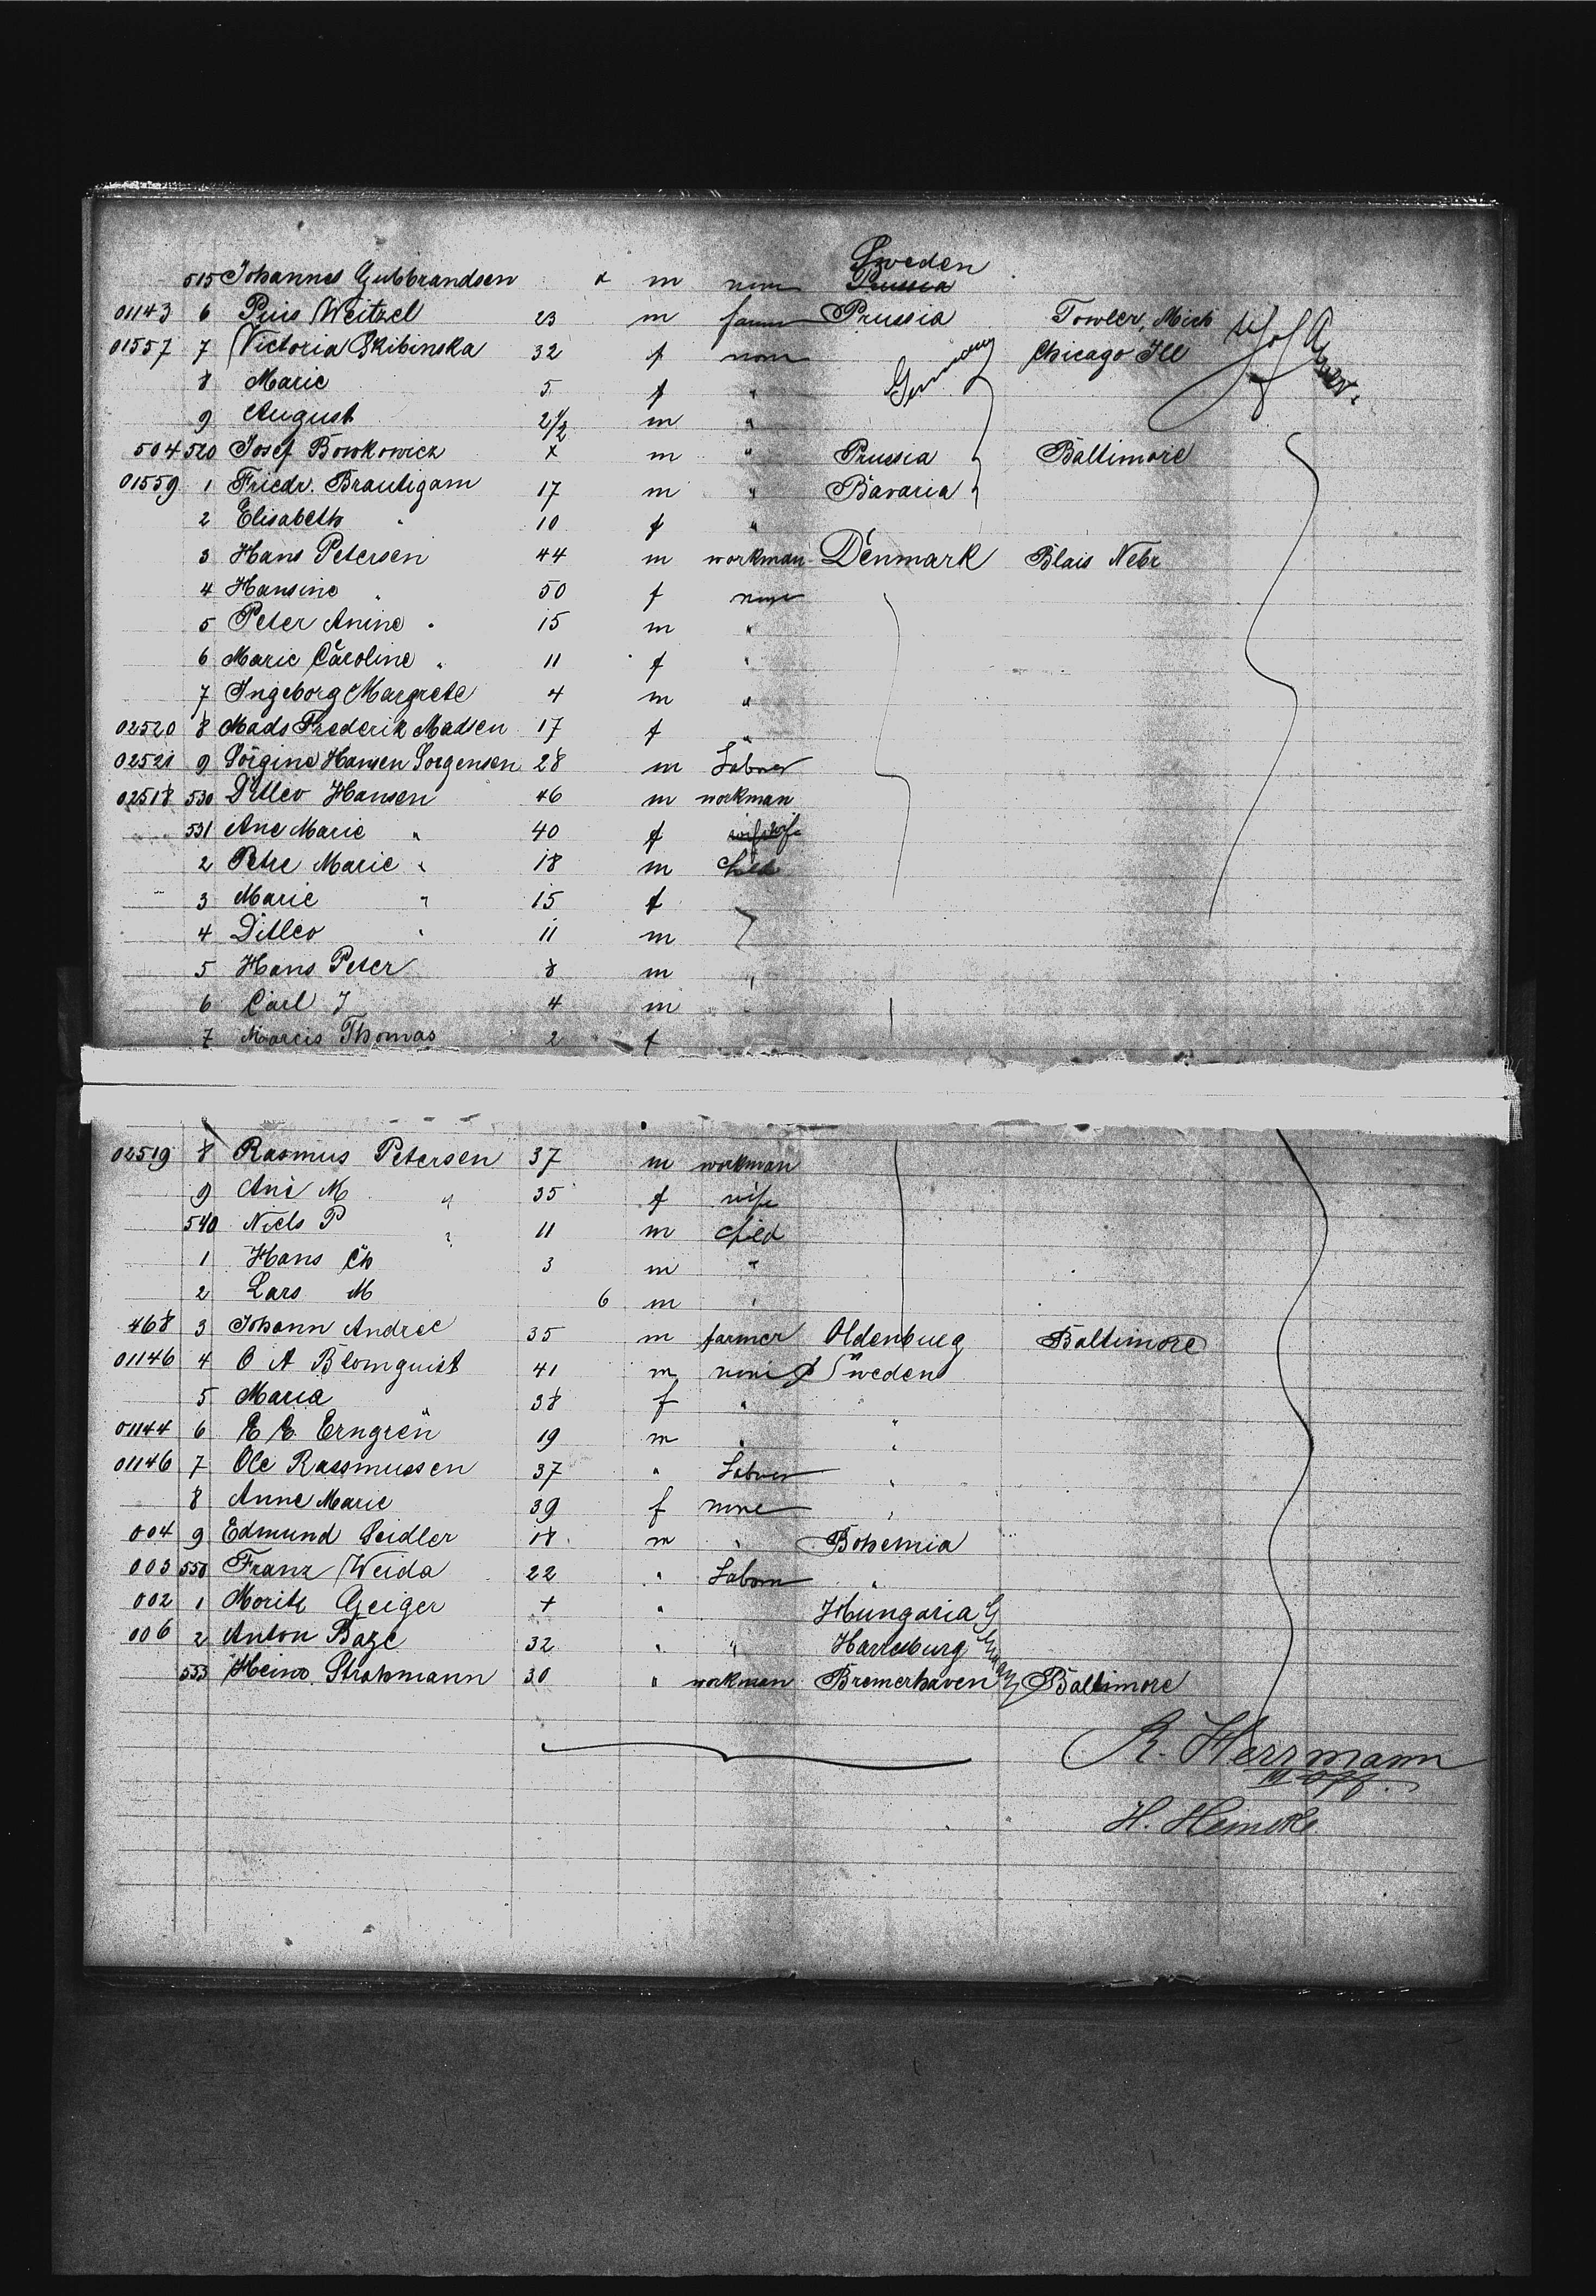 Sweden
515 Johannes Gubbrandsen x m none Prussia
01143 6 Pius Weitzel 23 m farmer Prussia Fowler, Mich
01557 7 Victoria Skibinska 32 f none Germany Chicago Ill
8 Marie 5 f "
9 August 2 1/2 m "
504 520 Josef Bowkowicz x m " Prussia Baltimore
01559 1 Friedr. Brautigam 17 m " Bavaria
2 Elisabeth " 10 f "
3 Hans Petersen 44 m workman Denmark Blais Nebr
4 Hansine " 50 f none
5 Peter Anine " 15 m "
6 Marie Caroline " 11 f "
7 Ingeborg Margrete 4 m "
02520 8 Mads Frederik Madsen 17 f "
02521 9 Sörgine Hansen Sorgensen 28 m Labour
02518 530 Ditlev Hansen 46 m workman
531 Ane Marie " 40 f wife
2 Petre Marie " 18 m child
3 Marie " 15 f
4 Ditlev " 11 m
5 Hans Peter 8 m "
6 Carl J 4 m
7 Marcis Thomas 2 f
02519 8 Rasmus Petersen 37 m workman
9 Ane M " 35 f wife
540 Niels P " 11 m child
1 Hans Ch 3 m "
2 Lars M 6 m "
468 3 Johann Andree 35 m farmer Oldenburg Baltimore
01146 4 O A Blomquist 41 m none Sweden
5 Maria 38 f " "
01144 6 E E Erngren 19 m " "
01146 7 Ole Rassmussen 37 " Labour "
8 Anne Marie 39 f none "
004 9 Edmund Seidler 18 m " Bohemia
003 550 Franz Weida 22 " Labour "
002 1 Moritz Geiger + " Hungaria
006 2 Anton Baze 32 " " Harrburg
553 Heinr. Strohmann 30 " workman Bremerhaven Baltimore
R. Herrmann
H. Heincke